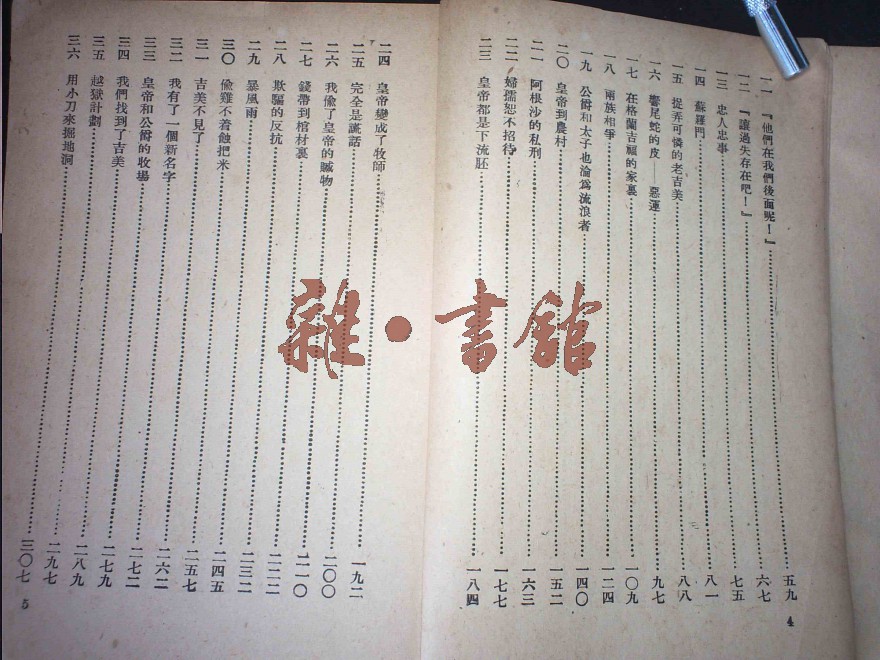 一一 『他們在我們後面呢！』……五九
一二 『讓過失存在吧！』……六七
一三 忠人忠事……七五
一四 蘇羅門……八一
一五 捉弄可憐的老吉美……八八
一六 響尾蛇的皮——惡運……九七
一七 在格蘭吉福的家裏……一〇九
一八 兩族相爭……一二四
一九 公爵和太子也淪爲流浪者……一四〇
二〇 皇帝到農村……一五二
二一 阿根沙的私刑……一六三
二二 婦孺恕不招待……一七七
二三 皇帝都是下流胚……一八四
4
二四 皇帝變成了牧師……一九二
二五 完全是謊話……二〇〇
二六 我偷了皇帝的贓物……二一〇
二七 錢帶到棺材裏……二二二
二八 欺騙的反抗……二三二
二九 暴風雨……二四五
三〇 偷雞不着蝕把米……二五七
三一 吉美不見了……二六二
三二 我有了一個新名字……二七二
三三 皇帝和公爵的牧場……二七九
三四 我們找到了吉美……二八九
三五 越獄計劃……二九七
三六 用小刀來掘地洞……三〇七
5
雜·書館